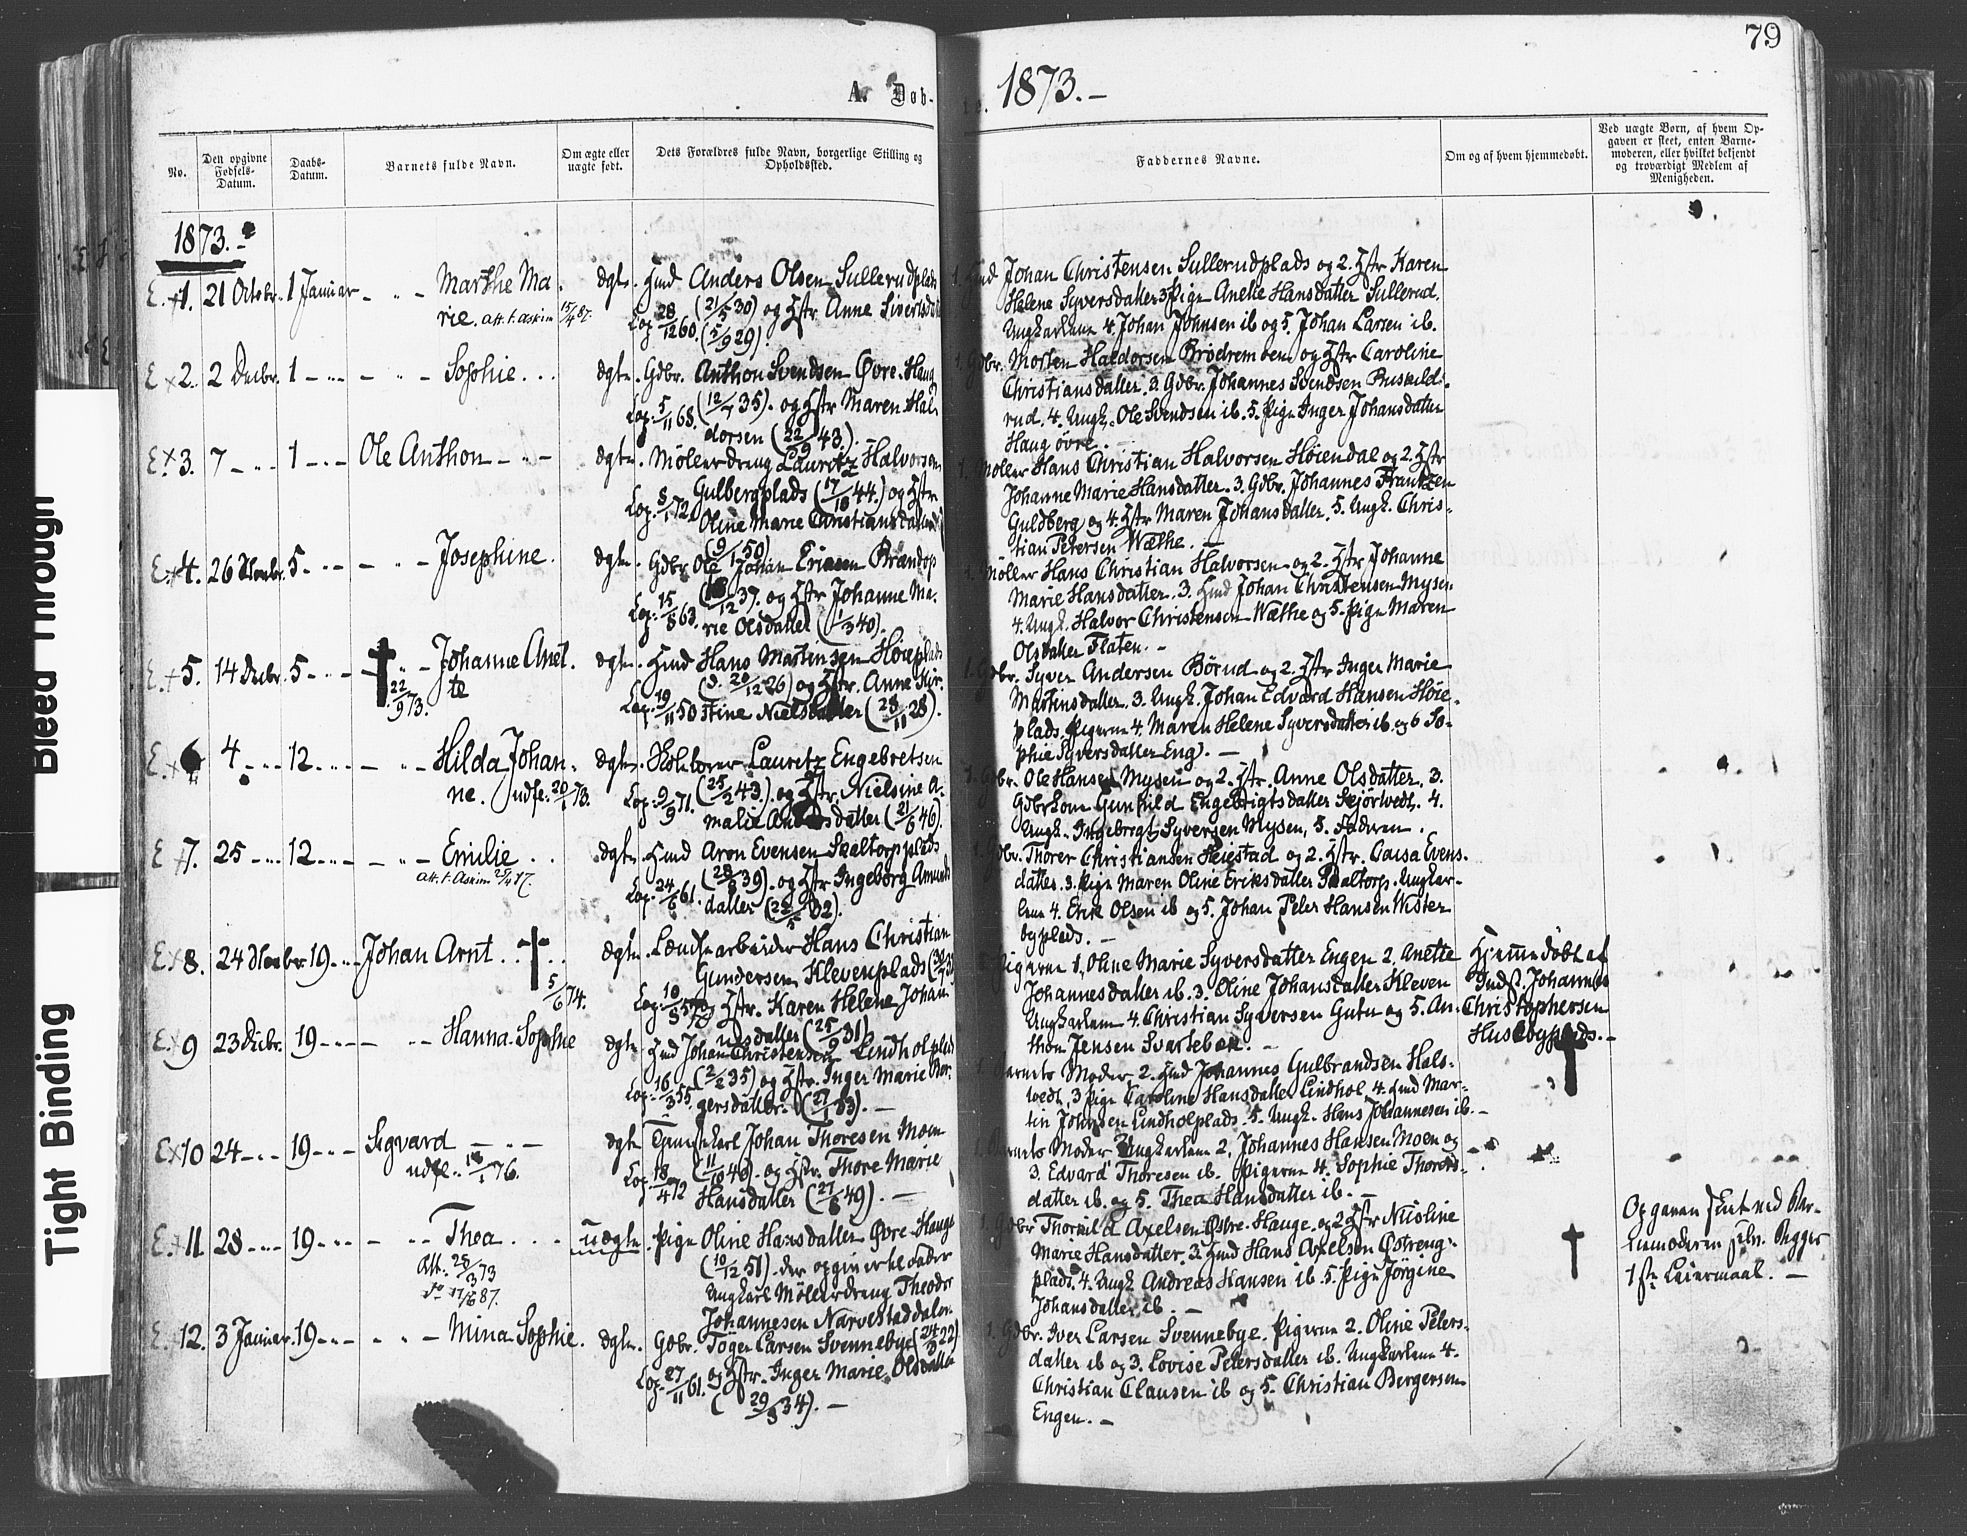 79
A. Døb-
1873.-
No.
Den opgivne Fødsels-Datum.
Daabs-Datum.
Barnets fulde Navn.
Om ægte eller uægte født.
Dets Forældres fulde Navn, borgerlige Stilling og Opholdssted.
Faddernes Navne.
Om og af hvem hjemmedøbt.
Ved uægte Børn, af hvem Opgaven er skeet, enten Barnemoderen, eller hvilket bekjendt og troværdigt Medlem af Menigheden.
1873.-
1. 21 Octobr. 1 Januar Marthe Ma-
rie. Att. t. Askim 15/4 87.
Ægte. Hmd Anders Olsen Sullerudplads
(21/5 30) og Hstr Anne Siverts
Cop. 28/12 60. (5/9 29).
1. Hmd Johan Christensen Sullerudplads og 2. Hstr Karen
Helene Syversdatter 3 Pige Anette Hansdatter Sullerud.
Ungkarlene 4. Johan Johnsen ib og 5. Johan Larsen ib.
2. 2 Decbr. 1 Sophie.
Ægte. Gdbr. Anthon Svendsen Øvre-Haug
Cop. 5/11 68. (12/7 35). og Hstr Maren Hal-
dorsen (22/9 43.).
1. Gdbr. Mosten Haldorsen Brødremoen og Hstr Caroline
Christiansdatter. 3. Gdbr. Johannes Svendsen Buskuld-
rud. 4. Ungk. Ole Svendsen ib. 5. Pige Inger Johansdatter
Haug øvre.
3. 7 1 Ole Anthon
Ægte. Møllerdreng Lauritz Halvorsen
Gulbergplads (17/10 44.) og Hstr
Cop. 8/1 72. Oline Marie Christiansdatter
(9/1 50)
1. Møller Hans Christian Halvorsen Høiendal og 2. Hstr
Johanne Marie Hansdatter. 3. Gdbr. Johannes Frantzen
Guldberg og 4. Hstr Maren Johansdatter. 5. Ungk. Chris-
tian Petersen Wæthe.
4. 26 Novbr. 5 Josephine.
Ægte. Gdbr Ole Johan Ericsen Brandop
12 37. og Hstr Johanne Ma-
Cop. 15/8 63. rie Olsdatter (1/3 40).
1. Møller Hans Christian Halvorsen og 2. Hstr Johanne
Marie Hansdatter. 3. Hmd Johan Christensen Mysen
4. Ungk. Halvor Christensen Wæthe og 5. Pige Maren
Olsdatter Flaten.
5. 14 Decbr. 5 Johanne Anet-
22/9 73. te
Ægte. Hmd Hans Mostensen Høieplads
(d. 20/12 26) og Hstr. Anne Kir-
Cop. 19/11 50 stine Nielsdatter (28/11 28).
1. Gdbr. Syver Andersen Børud og 2. Hstr Inger Marie
Mastinsdatter. 3. Ungk. Johan Edvard Hansen Høie-
plads. Pigerne 4. Maren Helene Syversdatter ib og 6 So-
phie Syversdatter Eng.
6 4 12 Hilda Johan-
ne. Udfl. 20/1 73.
Ægte. Lauritz Engebretsen
(25/2 43.) og Hstr. Nielsine A-
Cop. 9/9 71. malie datter (21/6 46).
1. Gdbr. Ole Hansen Mysen og 2. Hstr. Anne Olsdatter. 3.
Gdbrkone Gunhild Engebrigtsdatter Skjørtvedt. 4.
Ungk. Ingebregt Syversen Mysen, 5. Faderen.
7. 25 12 Emilie
Att. t. Askim
Ægte. Hmd Aron Evensen Skaltorpplads
39). og Hstr Ingeborg Amunds
Cop. 24/6 61. datter 32).
1. Gdbr. Thorer Christiansen Heiestad og 2. Hstr. Caisa Evens-
datter. 3. Pige Maren Oline Eriksdatter Skaltorp. Ungkar-
lene 4. Erik Olsen ib og 5. Johan Peter Hansen Wister
byplads.
8. 24 Novbr 19 Johan Arnt
5/6 74.
Ægte. Hans Christian
Gundersen Klevenplads
Cop. 10 Hstr. Karen Helene Johan-
nesdatter (25/9 31)
Pigerne 1. Oline Marie Syversdatter Engen 2. Anette
Johannesdatter ib. 3. Oline Johansdatter Kleven
Ungkarlene 4. Christian Syversen Gutu og 5. An-
thon Jensen Svartebæk.
Hjemmedøbt af
Inds. Johannes
Christophersen
Husebyplads.-
9 23 Decbr. 19 Hanna Sophie
Ægte Hmd Johan Christensen Lindholplads
(2/2 35) og Hstr. Inger Marie Bor-
Cop. 16/3 55. gersdatter. (27/1 33).
1. Barnets Moder, 2. Hmd Johannes Gulbrandsen Hals-
tvedt, 3 Pige Caroline Hansdatter Lindhol 4. Hmd Mar-
tin Johnsen Lindholplads. 5. Ungk. Hans Johannesen ib.
10 24 19 Sigvard
Udfl. 76.
Ægte Johan Thoresen Moen
(11/10 40). og Hstr. Thore Marie
Cop. 18/4 72 Hansdatter (27/8 49).
1. Barnets Moder Ungkarlene 2. Johannes Hansen Moen og
3. Edvard Thoresen ib. Pigerne 4. Sophie Thores-
datter ib. og 5. Thea Hansdatter ib.
11 28 19 Thea
Att. 26/3 73
do 87.
uægte. Pige Oline Hansdatter Øvre-Hauge
(10/12 51). der opgiver til Fader
Ungkarl Møllerdreng Theodor
Johannesen Narvestad
1. Gdbr Axelsen Østre-Hauge. og 2 Hstr
Marie Hansdatter. 3. Hmd Hans Axelsen Østreng-
plads. 4. Ungk Andreas Hansen ib. 5. Pige Jørgine
Johansdatter ib.
Opgaven skeet ved Bar-
nemoderen selv. Begges
1ste Leiermaal.
12. 3 Januar 19 Mina Sophie.
Ægte. Gdbr. Tøger Larsen Svennebye 22)
Cop. 27/11 61. og Hstr. Inger Marie Olsdatter
( 29/3 34).
1. Gdbr. Iver Larsen Svennebye. Pigerne 2. Oline Peters-
datter ib og 3. Lovise Petersdatter ib. Ungkarlene 4.
Christian Clausen ib og 5. Christian Bergersen
Engen.
Bleed Through
Tight Binding